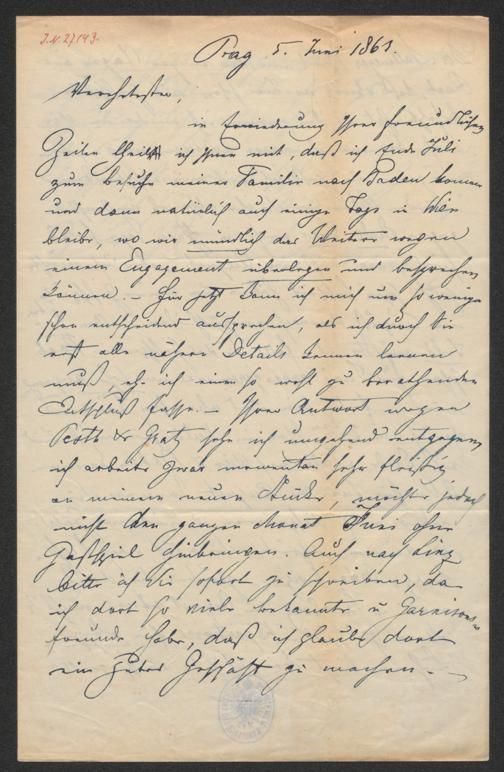 J.N. 27143.
Prag 5. Juni 1861.
Verehrtester,
in Erwiederung Ihrer freundlichen
Zeilen theile ich Ihnen mit, daß ich Ende Juli
zum Besuche meiner Familie nach Baden komme
und dann natürlich auch einige Tage in Wien
bleibe, wo wir mündlich das Weitere wegen
einem Engagement überlegen und besprechen
können. – Für jetzt kann ich mich um so weniger
schon entscheidend aussprechen, als ich durch Sie
erst alle nähern Details kennen lernen
muß, ehe ich einen so wohl zu berathenden
Entschluß fasse. – Ihrer Antwort wegen
Pesth & Gratz sehe ich umgehend entgegen,
ich arbeite zwar momentan sehr fleißig
an meinem neuen Stücke, möchte jedoch
nicht den ganzen Monat Juni ohne
Gastspiel hinbringen. Auch nach Linz
bitte ich Sie sofort zu schreiben, da
ich dort so viele bekannte u Garnisons-
freunde habe, daß ich glaube dort
ein gutes Geschäft zu machen. –